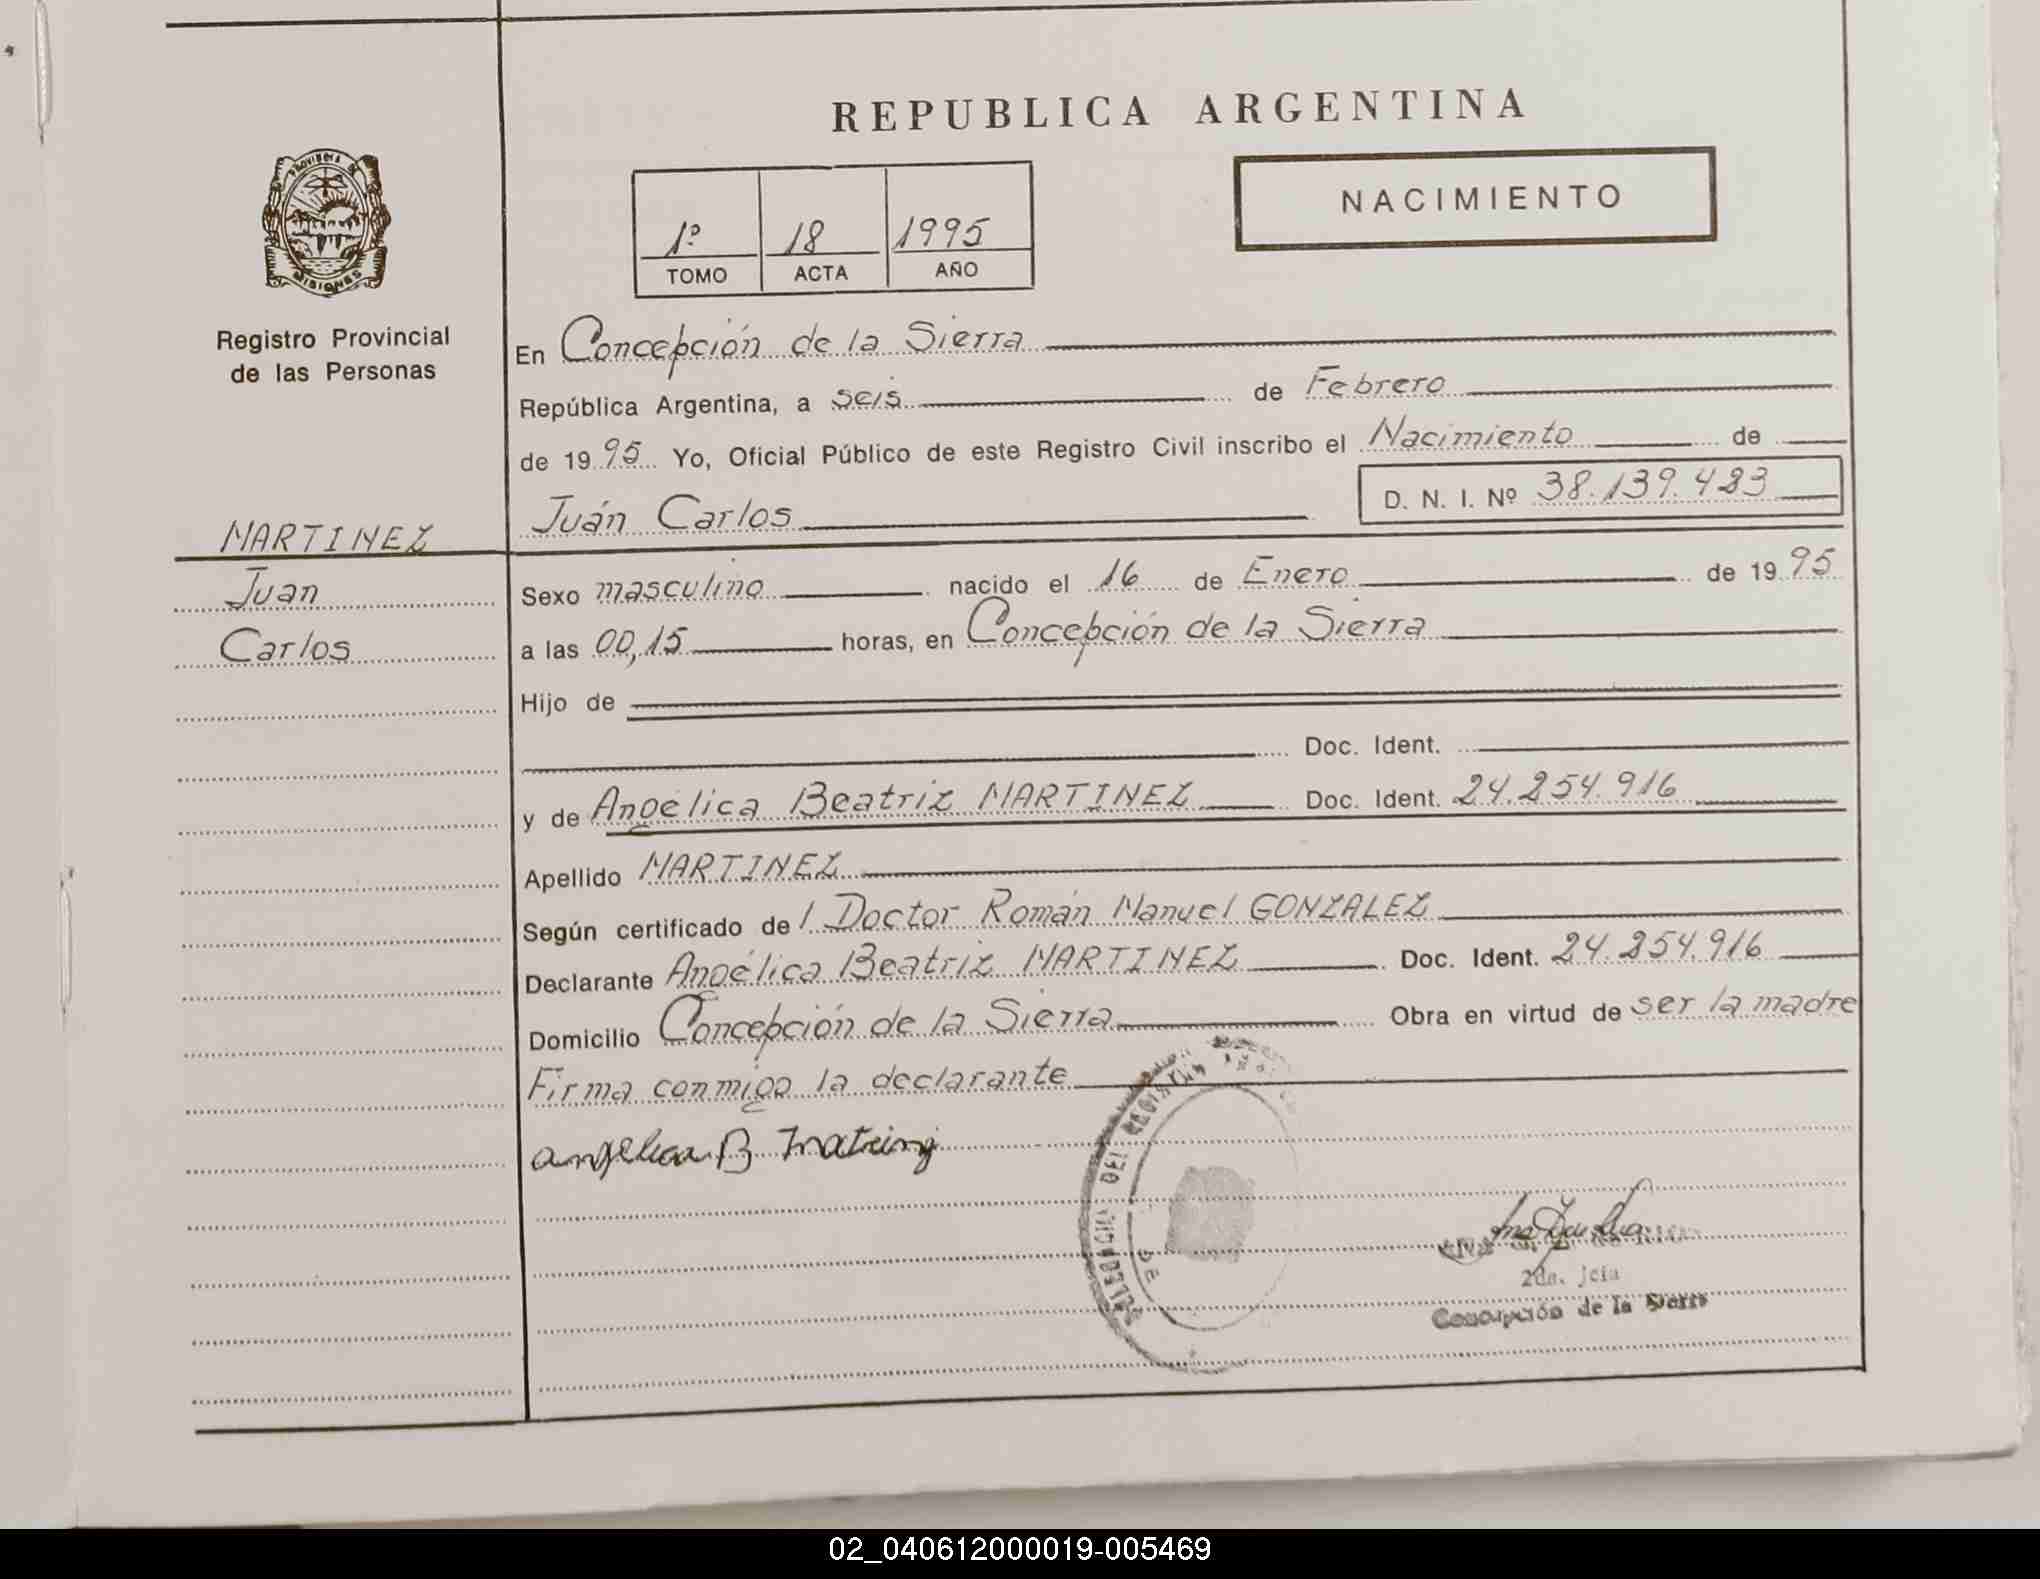 REPUBLICA ARGENTINA
NACIMIENTO
1º 18 1995
TOMO ACTA AÑO
PROVINCIA DE MISIONES
Registro Provincial
de las Personas
En Concepción de la Sierra
República Argentina, a seis de Febrero
de 1995 Yo, Oficial Público de este Registro Civil inscribo el Nacimiento de
Juán Carlos D. N. I. Nº 38.139.483
MARTINEZ
Juan
Carlos
Sexo masculino nacido el 16 de Enero de 1995
a las 00,15 horas, en Concepción de la Sierra
Hijo de
Doc. Ident.
y de Angélica Beatriz MARTINEZ Doc. Ident. 24.254.916
Apellido MARTINEZ
Según certificado del Doctor Román Manuel GONZALEZ
Declarante Angélica Beatriz MARTINEZ Doc. Ident. 24.254.916
Domicilio Concepción de la Sierra Obra en virtud de ser la madre
Firma conmigo la declarante
angelica B
DEL REGISTRO
DE
Concepción de la Sierra
02_040612000019-005469